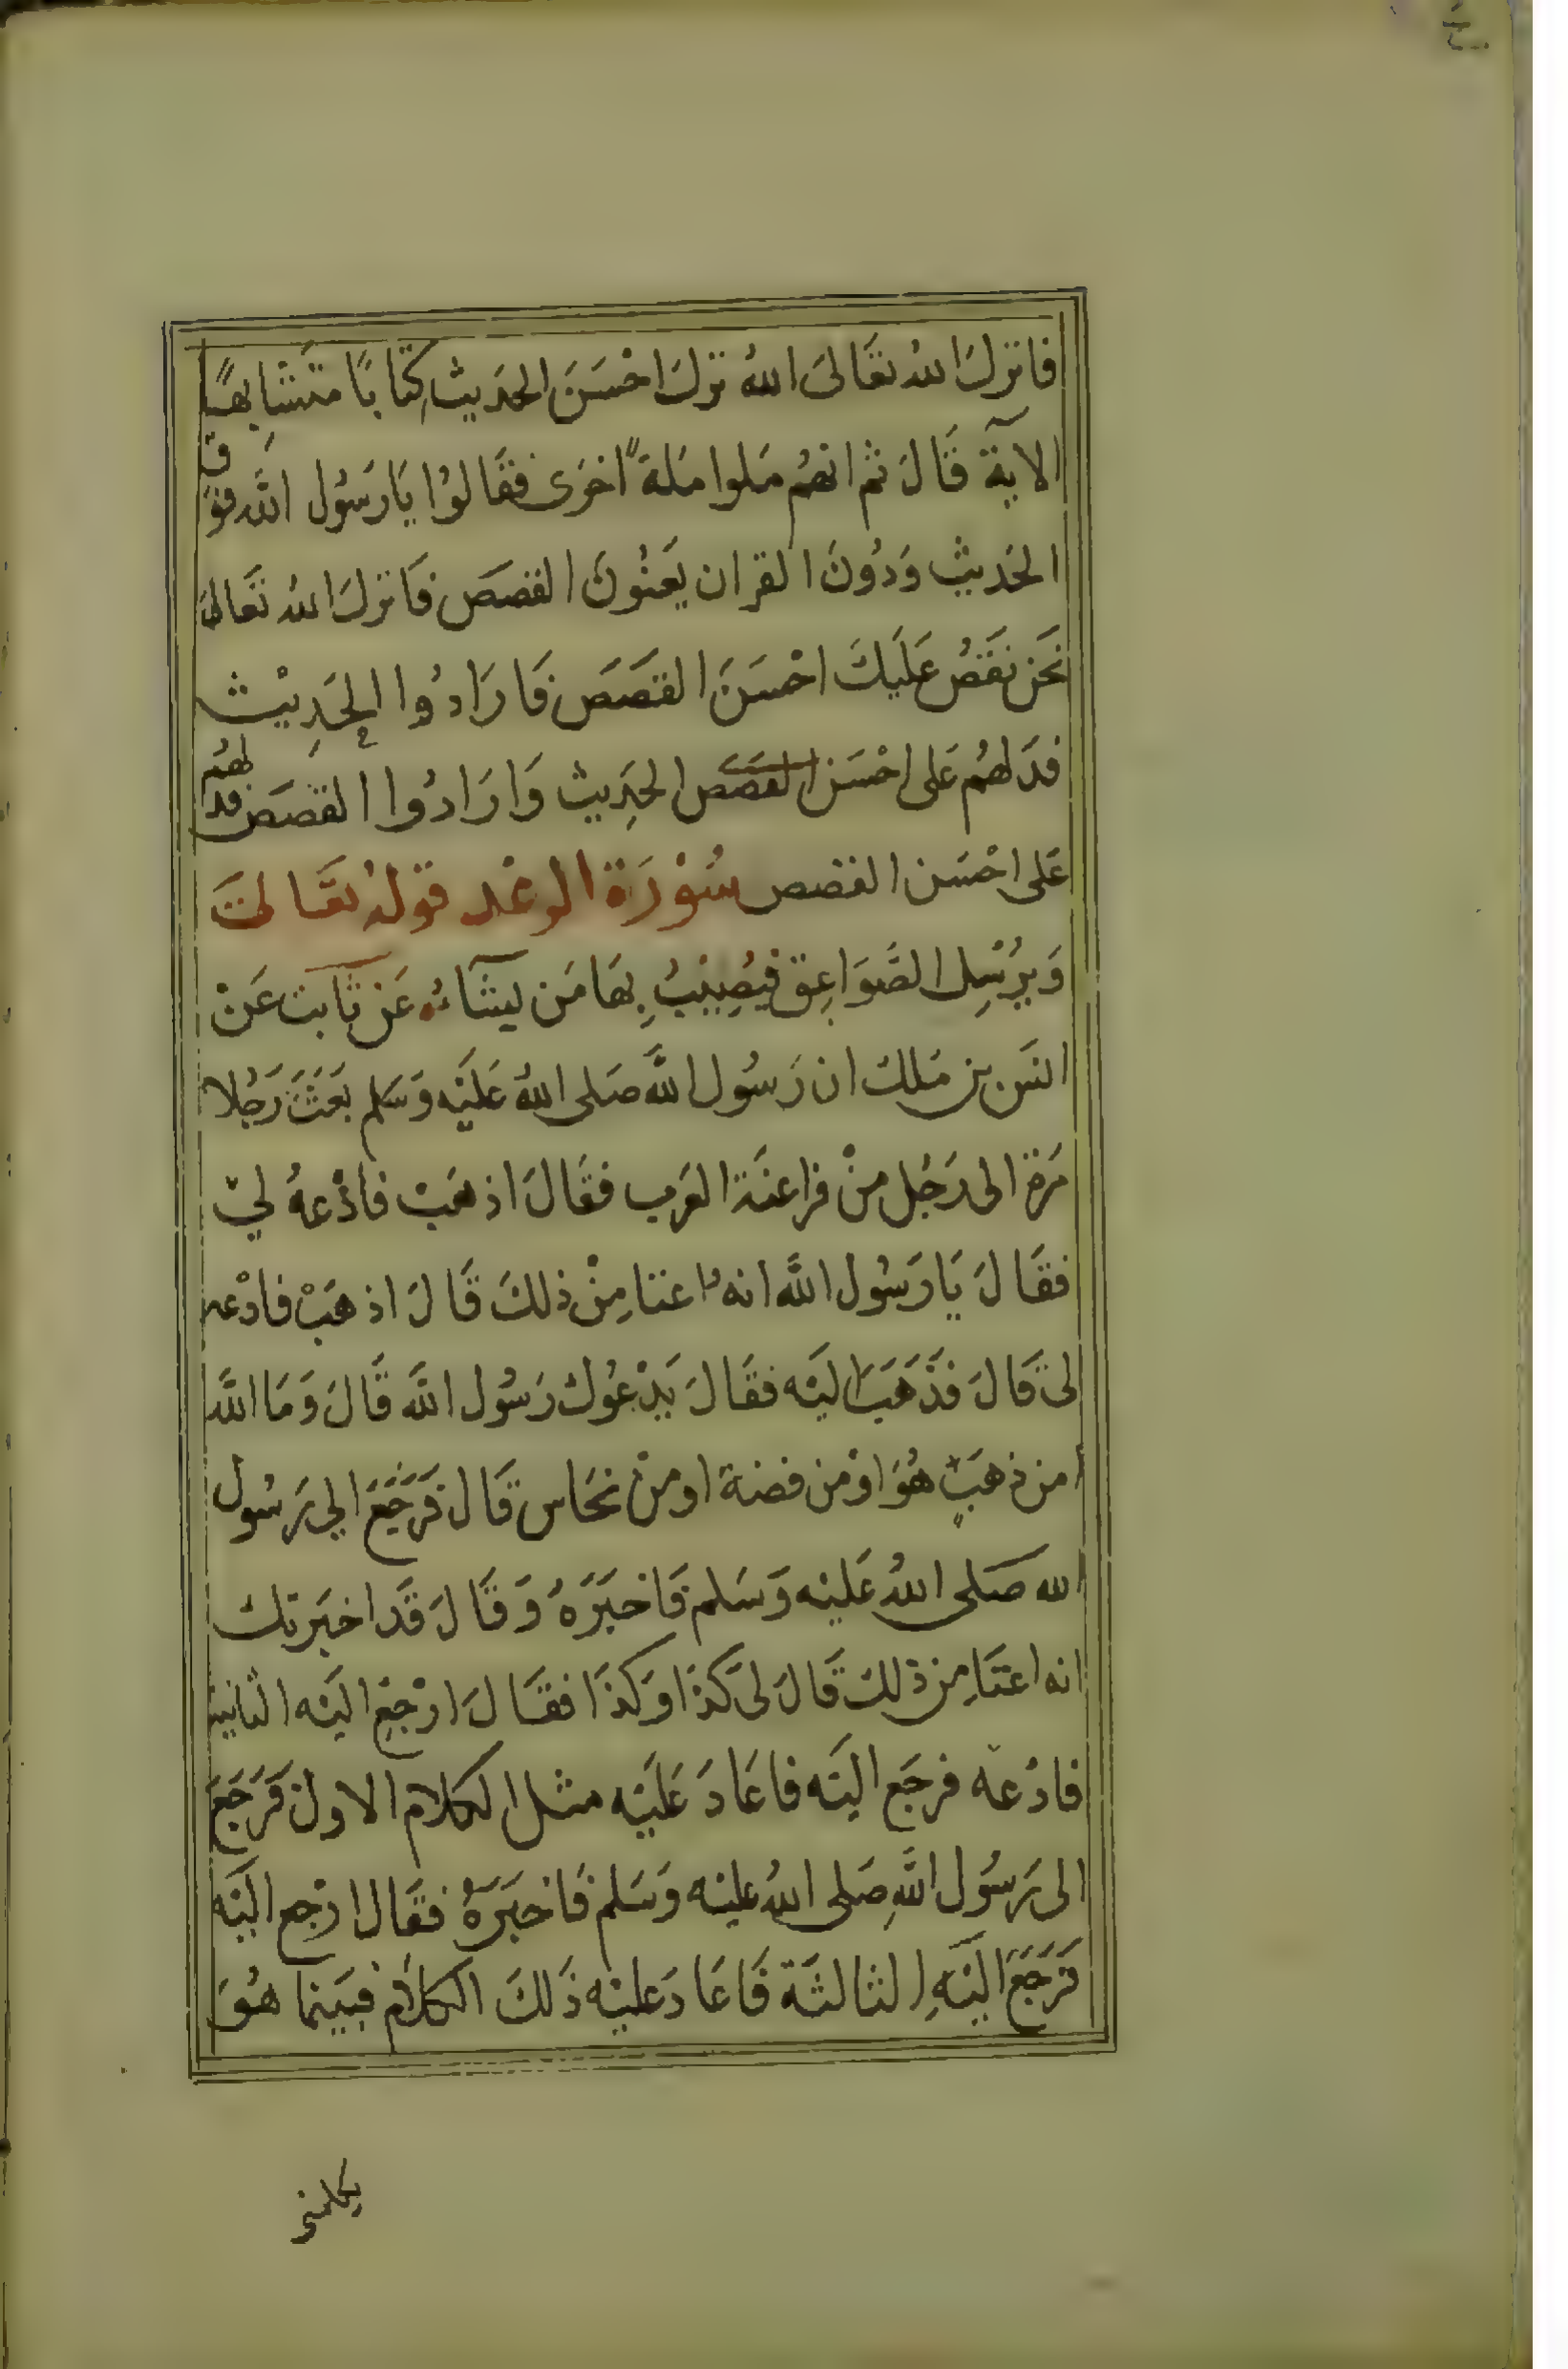 فانزلَ اللهُ تعَالىَ اللهُ نزلَ احْسَنَ الحَدَيث كِتَابًا متَشَابهًا
الآية قَالَ ثم انهُم مَلوا مَلةً اخرَى فقَالوُا يَا رَسُول اللَّه فوَق
الحَديث وَدُونَ القران يَعنُونَ القصصَ فَانزلَ اللهُ تعَالىَ
نحَن نقَصُ عَلَيكَ احْسَنَ القصَصَ فَارَادُوا الحَدِيْث
فدَلهُم عَلى احْسَن القصَص الحَدِيث وَارَادُوا القصَصَ فدلهُم
عَلى احْسَن القصص سُوْرَة الرعْد قولهُ تعَالىَ
وَيرُسِل الصَّوَاعِق فيُصِيْبُ بِهَا مَن يشَآءُ عَن ثابت عَنْ
انسَ بن مَلك ان رَسُول اللَّه صَلى اللهُ عَليَه وَسَلم بَعَثَ رَجُلا
مَرة الى رَجُل منْ فراعنَة العَرب فقَالَ اذهَبْ فادْعهُ ليْ
فقَالَ يَا رَسُول اللَّه انهُ اعتا مِنْ ذلكَ قَالَ اذهَبْ فادْعه
لى قَالَ فذَهَبَ اليَه فقَالَ يَدْعُوك رَسُول اللَّه قَالَ وَمَا اللَّه
امن ذهَبٍ هُوَ اوْ من فضة او منْ نحَاس قَال فرَجَعَ الي رَسُول
الله صَلى اللهُ عَليه وَسَلم فَاخبَرَهُ وَقَالَ قَد اخبَرتك
انه اعتَا مِن ذلك قَالَ لىَ كذا وَكذَا فقَالَ ارْجَع اليَه الثانية
فادْعه فرجَع اليَه فاعَادَ عَليَه مثل الكلام الاول فرَجَعَ
الى رَسُول اللَّهِ صَلى اللهُ عليه وَسَلم فَاخبَرَهُ فقَال ارْجع اليَه
فرَجَعَ اليَهِ الثالثَة فَاعَادَ عليْه ذَلكَ الكلام فبَينما هُوَ
يكلمنى